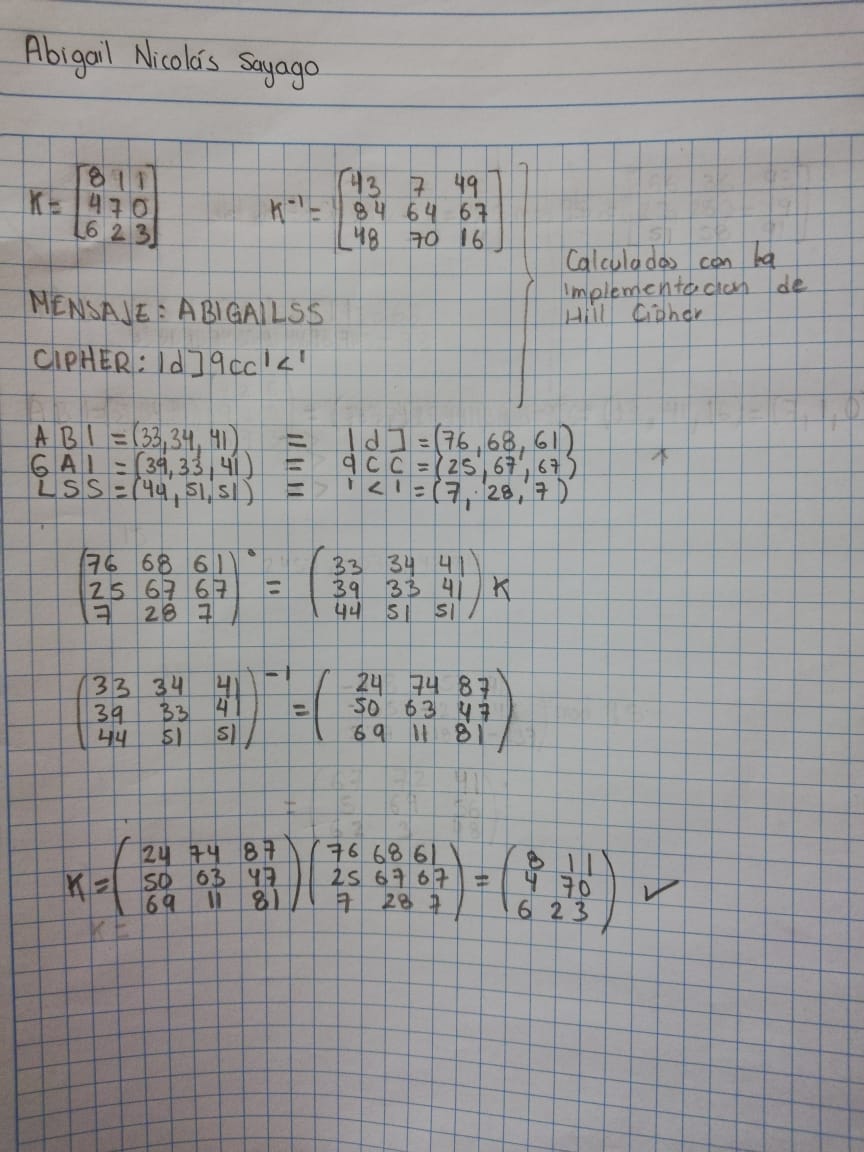 Abigail Nicolás Sayago
K = [8 1 1
4 7 0
6 2 3]
K⁻¹ = [43 7 49
84 64 67
48 70 16]
Calculados con la
implementacion de
Hill Cipher
MENSAJE: ABIGAILSS
CIPHER: ld]9cc'<'
A B I = (33,34, 41) = l d ] = (76, 68, 61)
G A I = (39, 33, 41) = 9 c c = (25, 67, 67)
L S S = (44, 51, 51) = ' < ' = (7, 28, 7)
(76 68 61
25 67 67
7 28 7) = (33 34 41
39 33 41
44 51 51) K
(33 34 41
39 33 41
44 51 51)⁻¹ = (24 74 87
50 63 47
69 11 81)
K = (24 74 87
50 63 47
69 11 81) (76 68 61
25 67 67
7 28 7) = (8 1 1
4 7 0
6 2 3) ✓